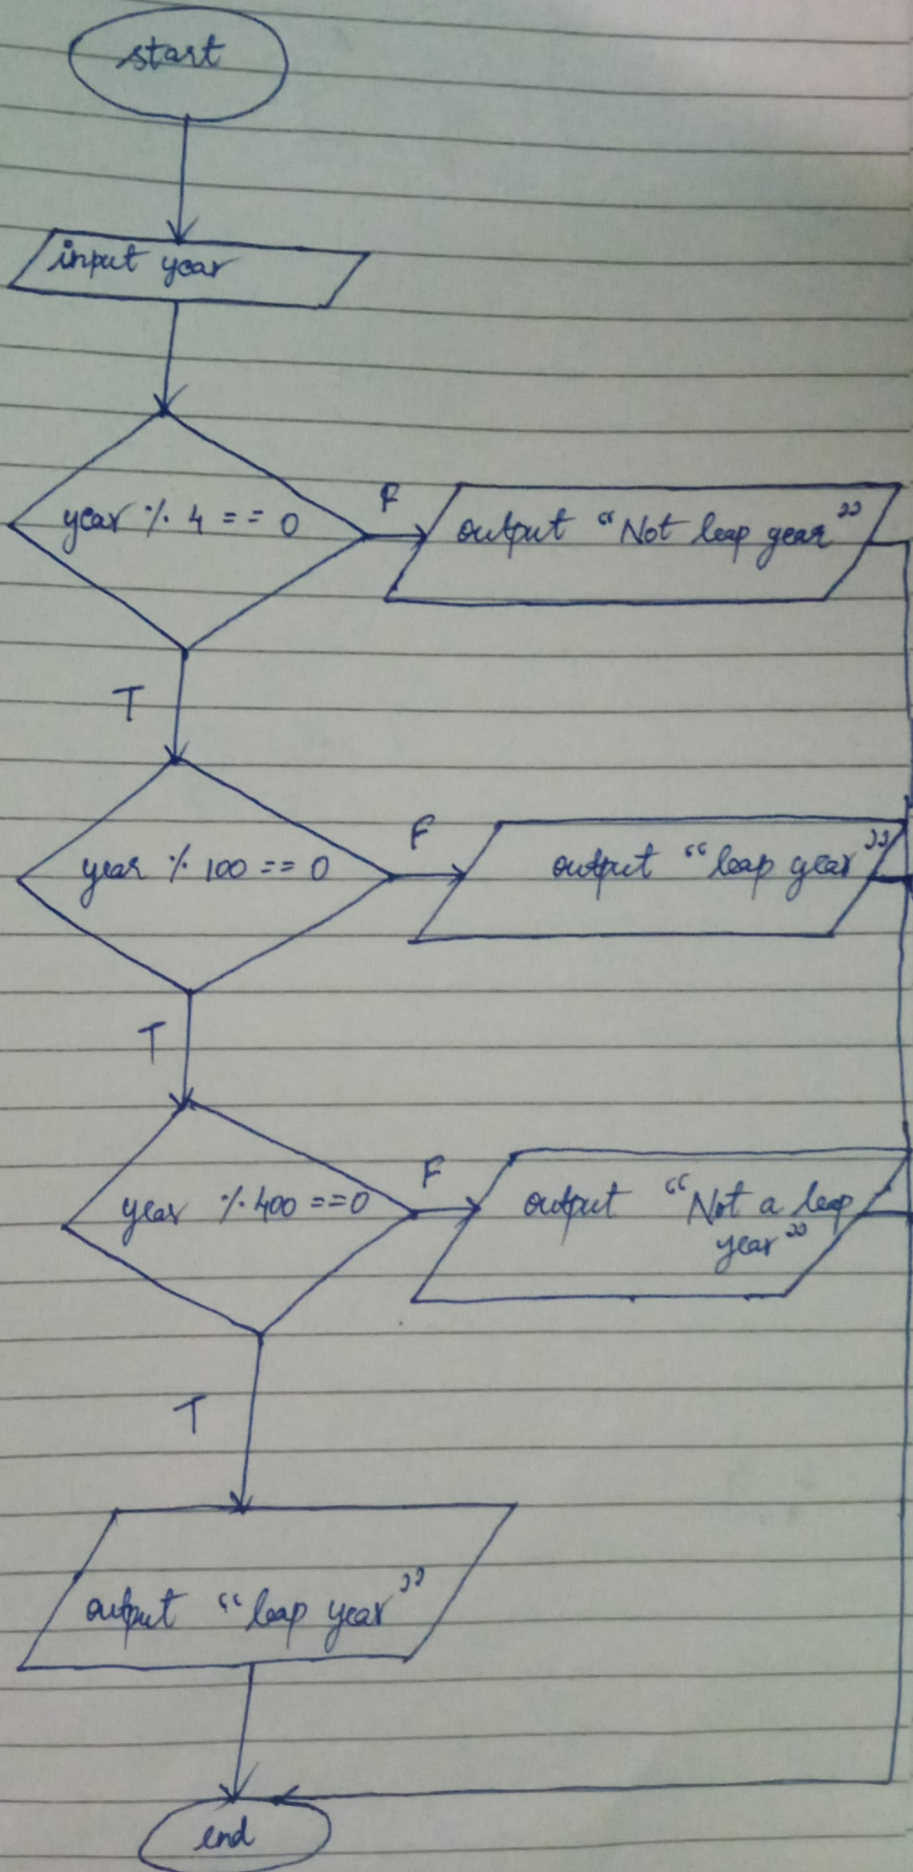 start
input year
year % 4 == 0
F
output "Not leap year"
T
year % 100 == 0
F
output "leap year"
T
year % 400 ==0
F
output "Not a leap
year"
T
output "leap year"
end